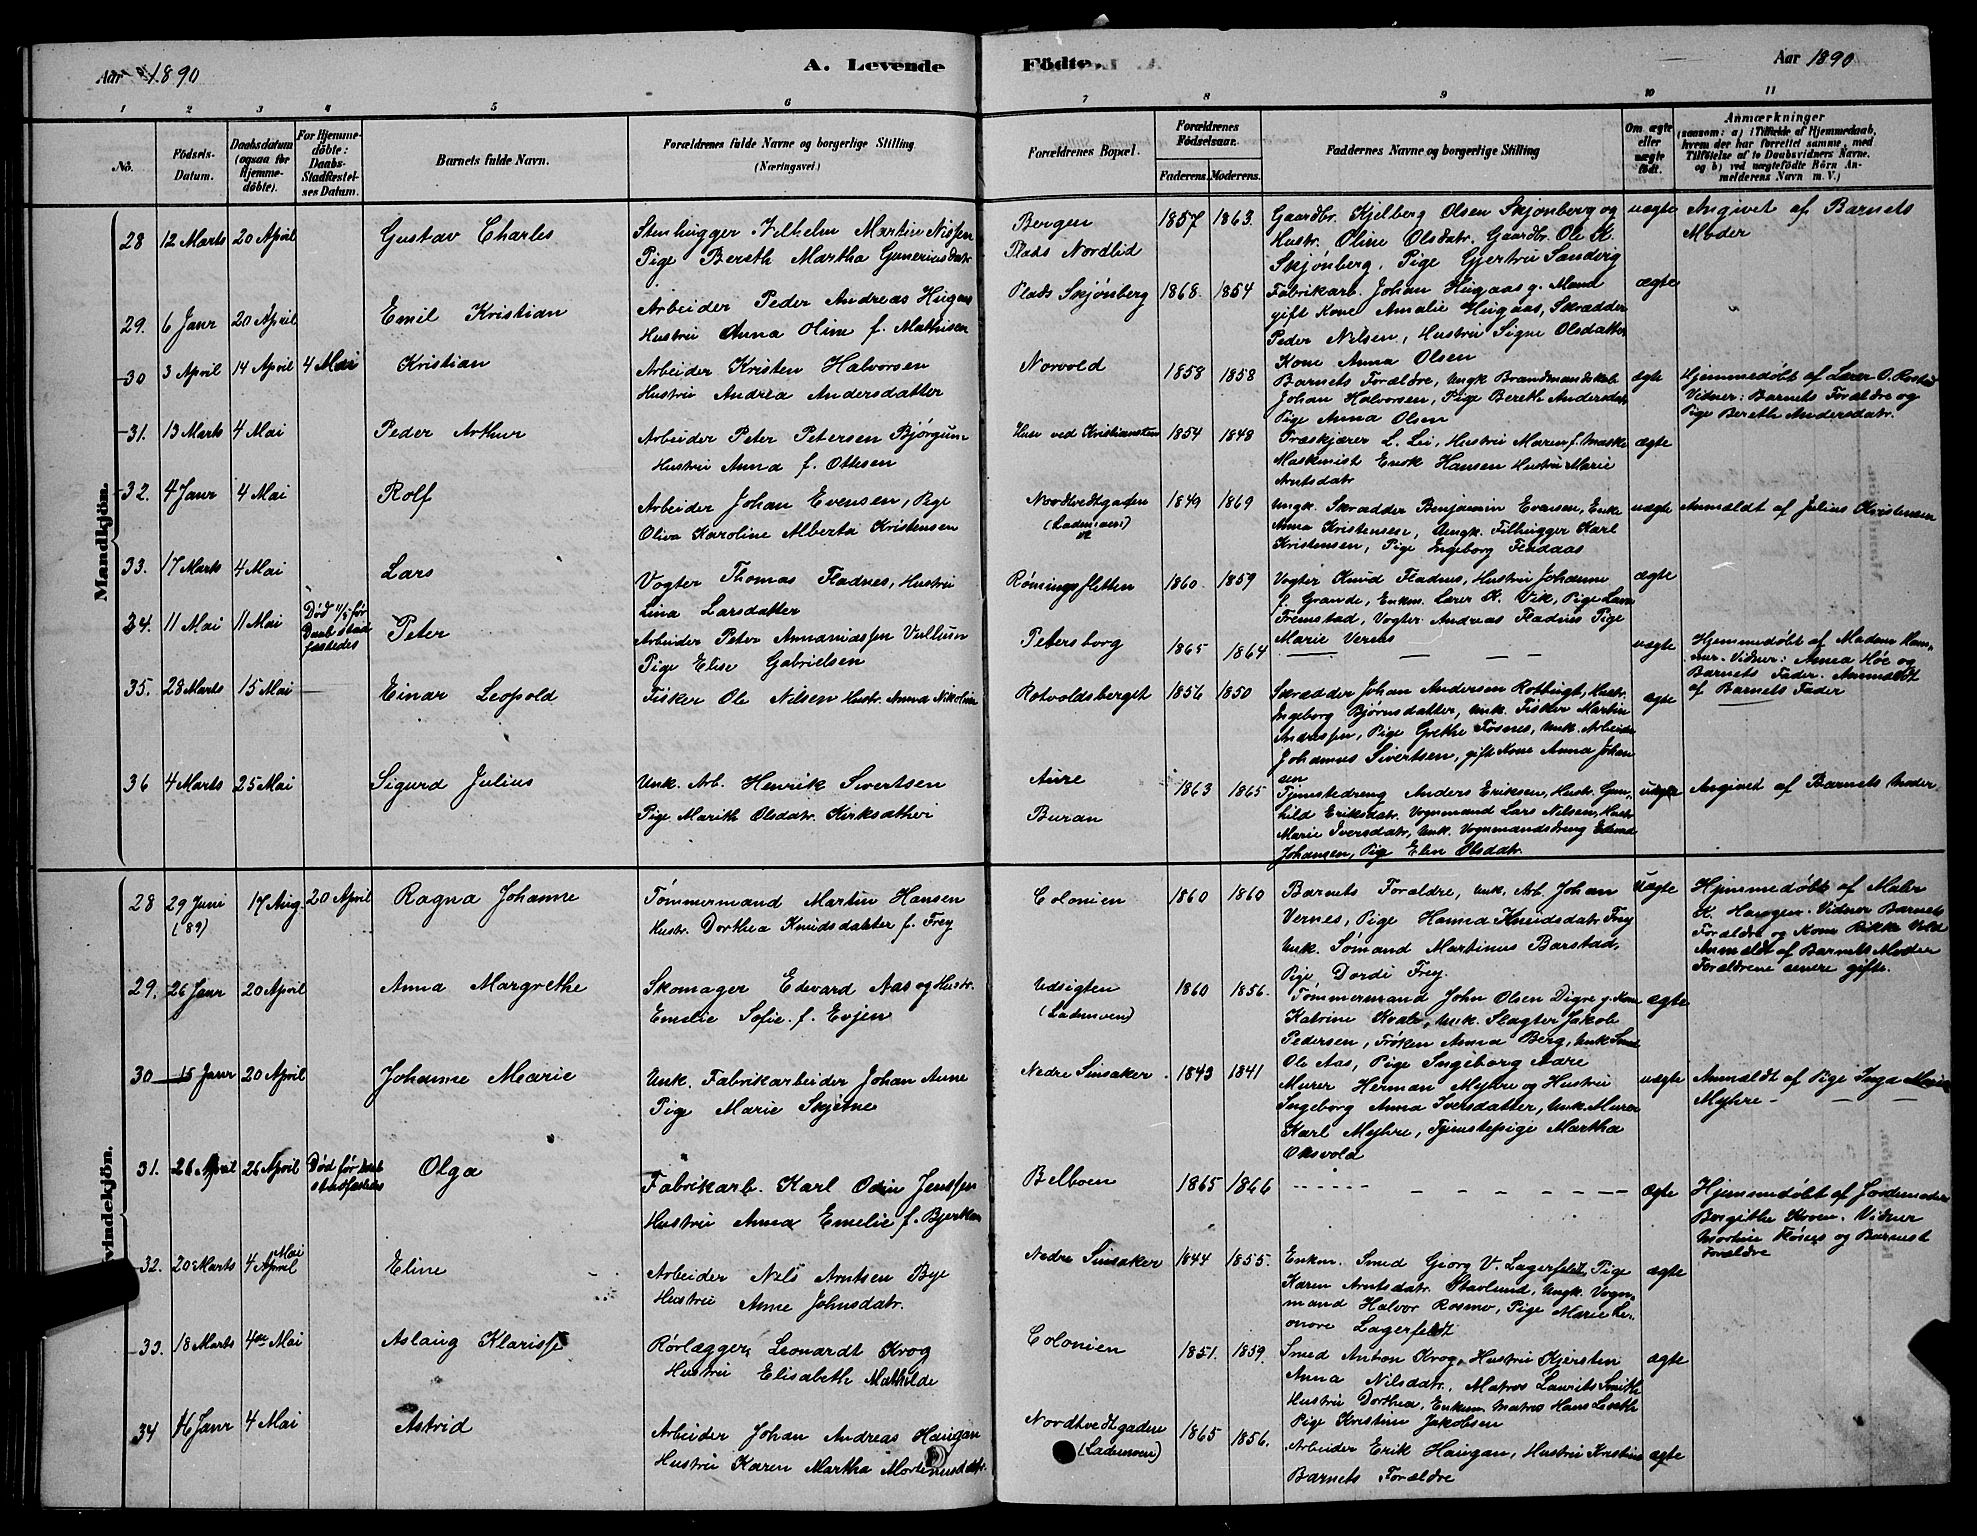 Aar 1890
A. Levende
Födte.
Aar 1890
1 2 3 4 5 6 7 8 9 10 11
No.
Födsels-Datum.
Daabsdatum (ogsaa for Hjemme-döbte).
For Hjemme-döbte: Daabs-Stadfæstel-ses Datum.
Barnets fulde Navn.
Forældrenes fulde Navne og borgerlige Stilling
(Næringsvei.)
Forældrenes Bopæl.
Forældrenes Födselsaar.
Faderens. Moderens.
Faddernes Navne og borgerlige Stilling
Om ægte eller uægte födt.
Anmærkninger
(saasom: a) i Tilfælde af Hjemmedaab, hvem der har forrettet samme, med Tilföielse af to Daabsvidners Navne, og b) ved uægtefödte Börn An-melderens Navn m. V.)
Mandkjön.
28 12 Marts 20 April Gustav Charles
Stenhugger Vilhelm Martin Nissen
Pige Bereth Martha Guneriusdatr
Bergen
Plads Nordlid
1857 1863.
Gaardbr. Kjelberg Olsen Skjønberg og
Hustr. Oline Olsdatr. Gaardbr. Ole K.
Skjønberg, Pige Gjertru Sandvig
uægte
Angivet af Barnets
Moder
29. 6 Janr 20 April Emil Kristian
Arbeider Peder Andreas Hugaas
Hustru Anna Oline f. Mathisen
Plads Skjønberg 1868. 1854
Fabrikarb. Johan Hugaas g. Mand
gift Kone Amalie Hugaas, Skrædder
Peder Nilsen, Hustru Signe Olsdatter
Kone Anna Olsen
ægte
30 3 April 14 April 4 Mai Kristian
Arbeider Kristen Halvorsen
Hustru Andrea Andersdatter
Norvold 1858 1858
Barnets Forældre, Ungk. Brandmandskab
Johan Halvorsen, Pige Bereth Andersdatr
Pige Anna Olsen
ægte
Hjemmedøbt af Lærer O. Rostad
Vidner: Barnets Forældre og
Pige Bereth Andersdatr.
31. 13 Marts 4 Mai Peder Arthur
Arbeider Peter Petersen Bjørgum
Hustru Anna f. Ottesen
Huse ved Kristiansten 1854 1848
Træskjærer L. Lei, Hustru Maren f. Maske
Maskinist Enok Hansen Hustru Marie
Arntsdatr
ægte
32. 4 Janr 4 Mai Rolf
Arbeider Johan Evensen, Pige
Oliva Karoline Alberta Kristensen
Nordtvedtgaden
(Ladmoen)
1849 1869
Ungk. Skrædder Benjamin Evensen, Enke
Anna Kristensen, Ungk. Filhugger Karl
Kristensen, Pige Ingeborg Fladaas
uægte
Anmeldt af Julius Kristensen
33. 17 Marts 4 Mai Lars
Vogter Thomas Fladnes, Hustru
Lina Larsdatter
Rønningsletten 1860. 1859
Vogter Knud Fladnes, Hustru Johanne
f. Grande, Enkm. Lærer K. Vik, Pige Lava
Fremstad, Vogter Andreas Fladnes Pige
Marie Vernes
ægte
34. 11 Mai 11 Mai
Død 11/5 før
Daab stad
fæstedes
Peter
Arbeider Peter Annaniassen Vullum
Pige Elise Gabrielsen
Petersborg 1865 1864
uægte
Hjemmedøbt af Madam Ham-
mer. Vidner: Anna Hoe og
Barnets Fader. Anmeldt
af Barnets Fader
35. 28 Marts 15 Mai Einar Leopold
Fisker Ole Nilsen Hustr. Anna Nikoline
Rotvoldsberget 1856 1850
Skrædder Johan Andersen Rotbugt, Hustr.
Ingeborg Bjørnsdatter, Unk. Fisker Martin
Andersen, Pige Grethe Fosnes, Unk. Arbeider
Johannes Sivertsen, gift Kone Anna Johan
sen
ægte
36 4 Marts 25 Mai Sigurd Julius
Unk. Arb. Henrik Sivertsen
Pige Marith Olsdatr. Kirksæther
Aure
Buran
1863 1865
Tjenestedreng Anders Eriksen, Hustr. Gun-
hild Eriksdatr. Vognmand Lars Nilsen, Hustr
Marie Iversdatr, Unk. Vognmandsdreng Edvard
Johansen, Pige Elen Olsdatr.
uægte
Angivet af Barnets Moder
vindekjön.
28 29 Juni
(89)
17 Aug. 20 April Ragna Johanne
Tømmermand Martin Hansen
Hustr. Dorthea Knudsdatter f. Frey
Colonien 1860 1860
Barnets Forældre, Unk. Arb. Johan
Vernes, Pige Hanna Knudsdatr Frey
Unk. Sømand Martinus Barstad,
Pige Dordi Frey.
Uægte
Hjemmedøbt af Maler
K. Haugen. Vidner Barnets
Forældre og Kone Rikke Vold
Anmeldt af Barnets Moder
Forældrene senere gifte.
29. 26 Janr 20 April Anna Margrethe
Skomager Edvard Aas og Hustr.
Emelie Sofie f. Evjen
Udsigten
(Ladmoen)
1860 1856.
Tømmermand John Olsen Digre g. Kone
Katrine Kvale, Unk. Slagter Jakob
Pedersen, Frøken Anna Berg, Unk Smed
Ole Aas, Pige Ingeborg Aare
ægte
30 15 Janr 20 April Johanne Marie
Unk. Fabrikarbeider Johan Aune
Pige Marie Skjetne
Nedre Sinsaker 1843 1841
Murer Herman Myhre og Hustru
Ingeborg Anna Iversdatter, Unk. Murer
Karl Myhre, Tjenestepige Martha
Oksvold
uægte
Anmeldt af Pige Inga Marie
Myhre
31. 26 April 26 April
Død før Daab
stadfæstedes
Olga
Fabrikarb. Karl Odin Jenssen
Hustru Anna Emelie f. Bjerkan
Belboen 1865 1866
ægte
Hjemmedøbt af Jordemoder
Birgithe Kroen. Vidner
Martine Rønes og Barnets
Forældre
32. 20 Marts 4 April Mai Eline
Arbeider Nils Arntsen Bye
Hustru Anne Johnsdatr.
Nedre Sinsaker 1844 1855.
Enkm. Smed Georg V. Lagerfeldt, Pige
Karen Arntsdatr. Stavlund, Ungk. Vogn-
mand Halvor Rosmo, Pige Marie Le-
onore Lagerfeldt
ægte
33. 18 Marts 4de Mai Aslaug Klarisse
Rørlægger Leonardt Krog
Hustru Elisabeth Mathilde
Colonien 1851. 1859.
Smed Anton Krog, Hustru Kjersten
Anna Nilsdatr. Matros Laurits Smith
Hustru Dorthea, Enkem. Matros Hans Leseth
Pige Kristine Jakobsen
ægte
34 16 Janr 4 Mai Astrid
Arbeider Johan Andreas Haugan
Hustru Karen Martha Mortinusdatr.
Nordtvedtgaden
(Ladmoen)
1865 1856.
Arbeider Erik Haugan, Hustru Kristine
Barnets Forældre
ægte